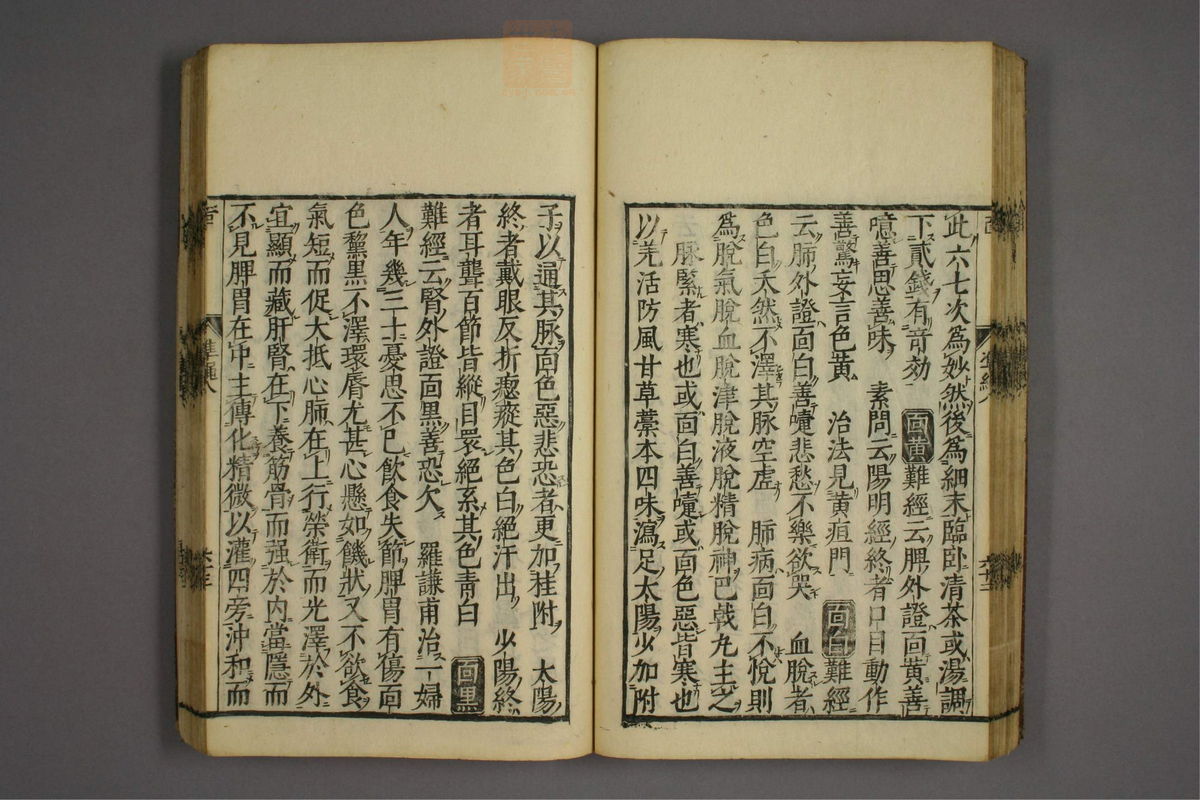 此六七次為妙然後為細末臨臥清茶或湯調
下貳錢有音効　面黃難經云脾外證面黃善
噫善思善味　素問云陽明經終者口目動作
善驚妄言色黃　治法見黃疸門　面白難經
云肺外證面白善嚏悲愁不樂欲哭　血脫者
色白夭然不澤其脉空虛　肺病面白不悅則
為脫氣脫血脫津脫液脫精脫神巴戟丸主之
脉緊者寒也或面白善嚏或面色惡皆寒也
以羌活防風甘草藁本四味瀉足太陽少加附
子以通其脉面色惡悲恐者更加桂附　太陽
終者戴眼反折瘛瘲其色白絕汗出　少陽終
者耳聾百節皆縱目睘絕系其色青白　面黑
難經云腎外證面黑善恐欠　羅謙甫治一婦
人年幾三十憂思不已飲食失節脾胃有傷面
色黧黑不澤環唇尤甚心懸如饑狀又不欲食
氣短而促大抵心肺在上行榮衛而光澤於外
宜顯而藏肝腎在下養筋骨而强於內當隱而
不見脾胃在中主傳化精微以灌四旁沖和而